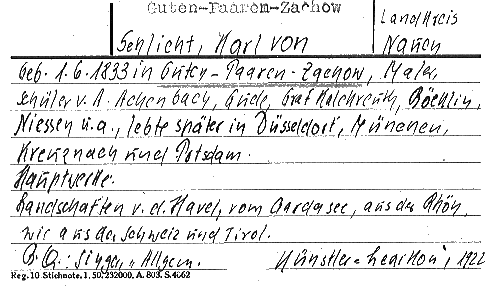 Guten-Paarem-Zachow
Landkreis
Schlicht, Karl von
Nauen
Geb. 1.6.1833 in Guten-Paaren-Zachow, Maler,
Schüler v. A. Achenbach, Gude, Graf Kalckreuth, Böcklin,
Niessen u.a., lebte später in Düsseldorf, München,
Kreuznach und Potsdam.
Hauptwerke.
Landschaften v. d. Havel, vom Gardasee, aus der Rhön,
wie aus der Schweiz und Tirol.
B. Q.: Singer, "Allgem. Künstler-Lexikon", 1922
Reg. 10 Stichnote. 1, 50. 232000, A. 803. S. 4662